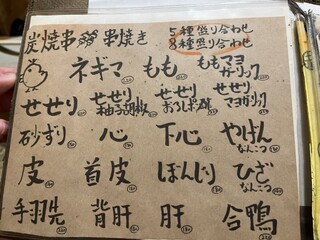 炭焼串 串焼き
5種盛り合わせ
8種盛り合わせ
ネギマ もも ももマヨガーリック
せせり せせり柚子胡椒 せせりおろしポン酢 せせりマヨガーリック
砂ずり 心 下心 やげんなんこつ
皮 首皮 ぼんじり ひざなんこつ
手羽先 背肝 肝 合鴨